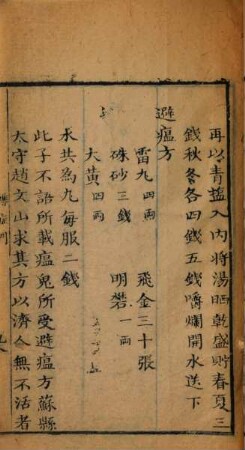 再以青盐入内将湯晒乾盛貯春夏三
錢秋冬各四錢五錢嚼爛開水送下
避瘟方
雷丸四兩 飛金三十張
硃砂三錢 明礬一兩
大黃四兩
水共為丸每服二錢
此子不語所載瘟鬼所受避瘟方蘇縣
太守趙文山求其方以濟人無不活者